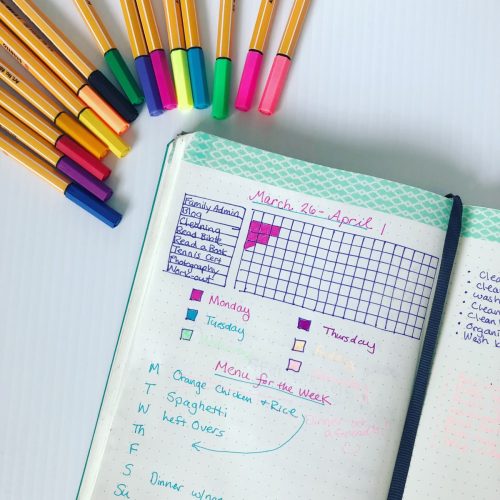 March 26 - April 1
Family Admin
Blog
Cleaning
Read Bible
Read a Book
Tennis Cert
Photography
Work-out
Monday
Tuesday
Thursday
Menu for the Week
M Orange Chicken & Rice
T Spaghetti
W Left Overs
Th
F
S
Su Dinner w/
Clean
Clean
Wash
Clean
Clean
Organi
Wash